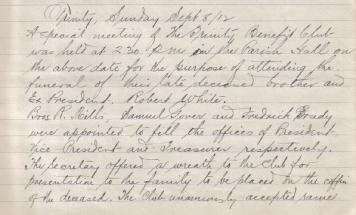 Trinity, Sunday Sept 8/12
A special meeting of the Trinity Benefit Club
was held at 2.30 p.m. in the Parish Hall on
the above date for the purpose of attending the
funeral of their late deceased brother and
Ex President. Robert White.
Bros R. Mills, Samuel and Fredrick Brady
were appointed to fill the offices of President
Vice President and Treasurer respectively.
The Secretary offered a wreath to the Club for
presentation to the family to be placed on the coffin
of the deceased. The Club unanimously accepted same